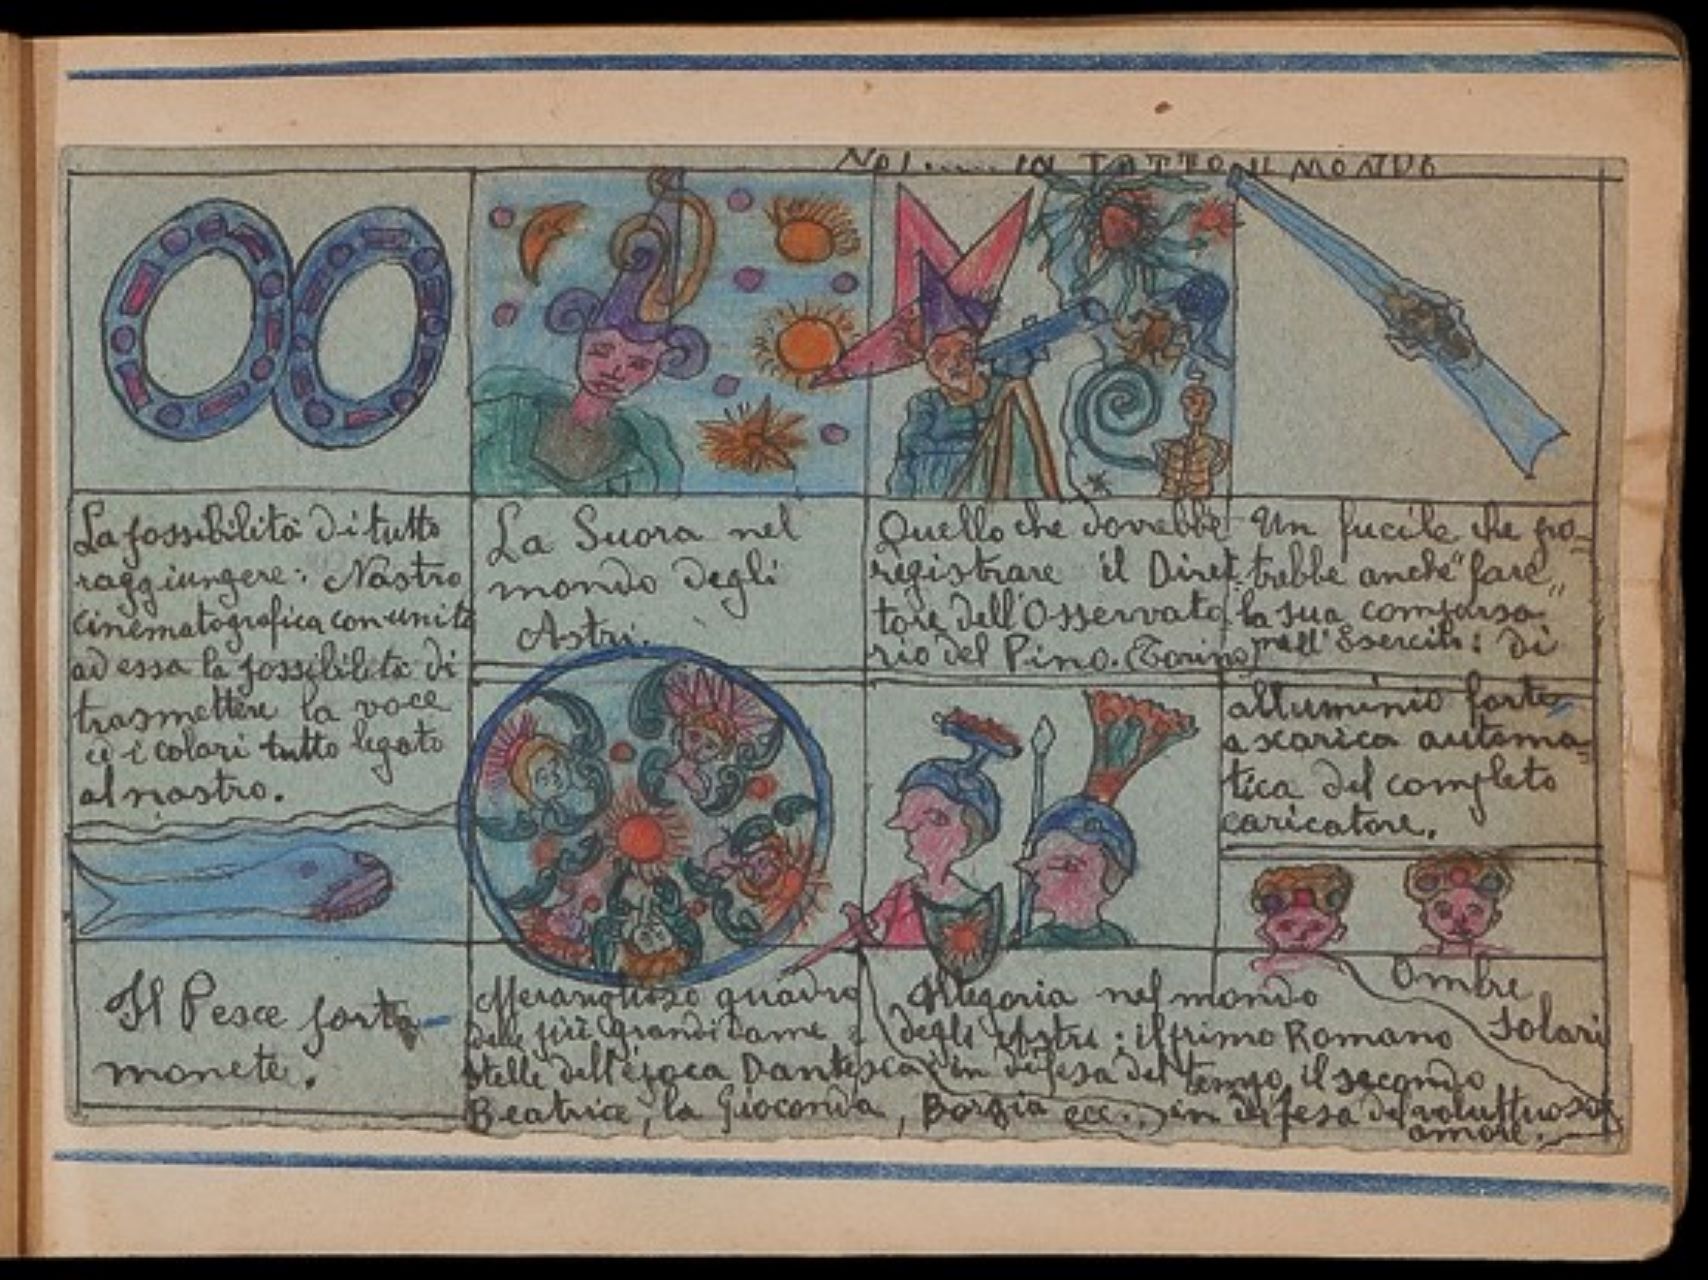 NOI..... IN
La possibilità di tutto
raggiungere: Nastro
cinematografica con unita
ad essa la possibilità di
trasmettere la voce
e i colori tutto legato
al nastro.
La Suora nel
mondo degli
Astri.
Quello che dovrebbe
registrare il Diret-
tore dell'Osservato
rio del Pino. (Torino)
Un fucile che po-
trebbe anche "fare"
la sua comparsa
nell'Esercito: di
alluminio forte
a scarica automa-
tica del completo
caricatore.
Il Pesce porta-
monete.
Meraviglioso quadro
delle più grandi dame e
stelle dell'época Dantesca
Beatrice, la Gioconda, Borgia ecc..
Allegoria nel mondo
degli Astri: il primo Romano
in difesa del tempo il secondo
in difesa del voluttuoso
amore.
Ombre
solari